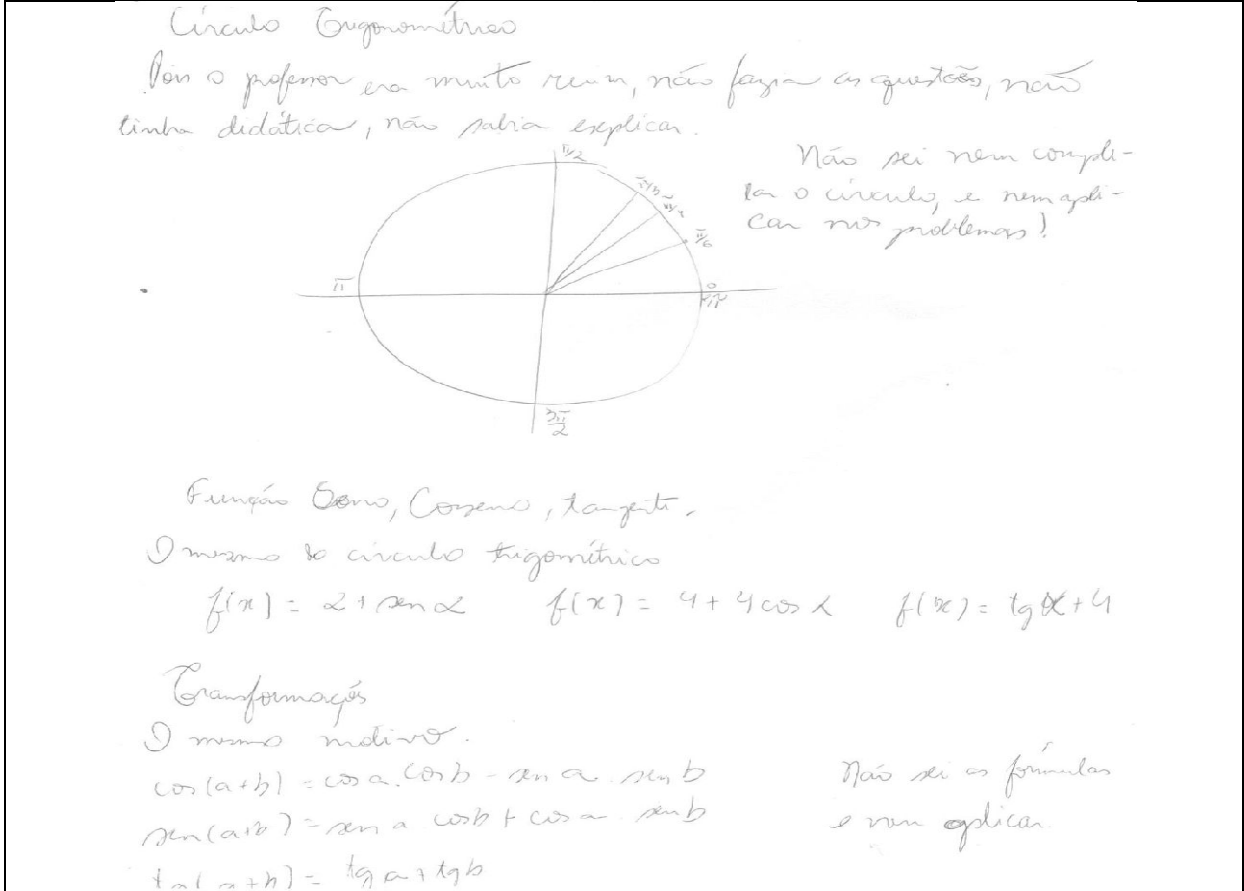 Círculo Trigonométrico
Pois o professor era muito ruim, não fazia as questões, não
tinha didática, não sabia explicar.
Não sei nem comple-
tar o círculo, e nem apli-
car nos problemas!
π/2
π/6
π
0
2π
3π/2
Função Seno, Cosseno, tangente.
O mesmo do círculo trigométrico
f(x) = 2 + sen α f(x) = 4 + 4 cos α f(x) = tg α + 4
Transformações
O mesmo motivo.
cos(a+b) = cos a . cos b - sen a . sen b
sen(a+b) = sen a cos b + cos a sen b
tg(a+b) = tg a + tg b
Não sei as fórmulas
e nem aplicar